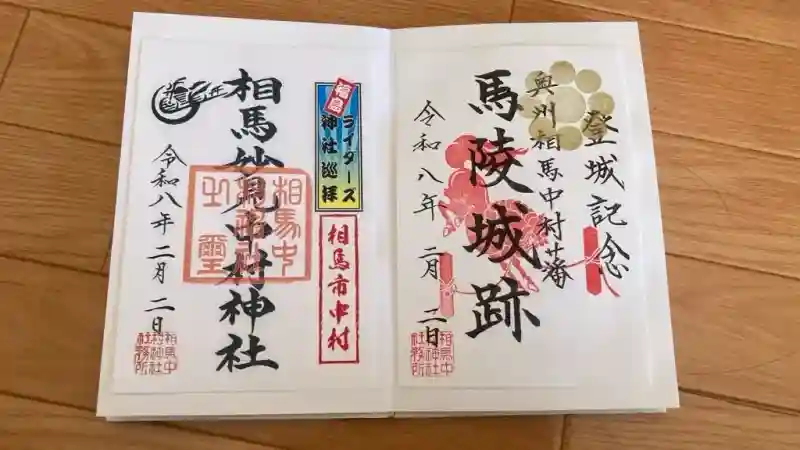 登城記念
奥州相馬中村藩
馬陵城跡
令和八年 二月 二日
相馬中
村神社
社務所
福島
ライダーズ
神社巡拝
相馬市中村
相馬妙見中村神社
令和八年 二月 二日
相馬中
村神社
社務所